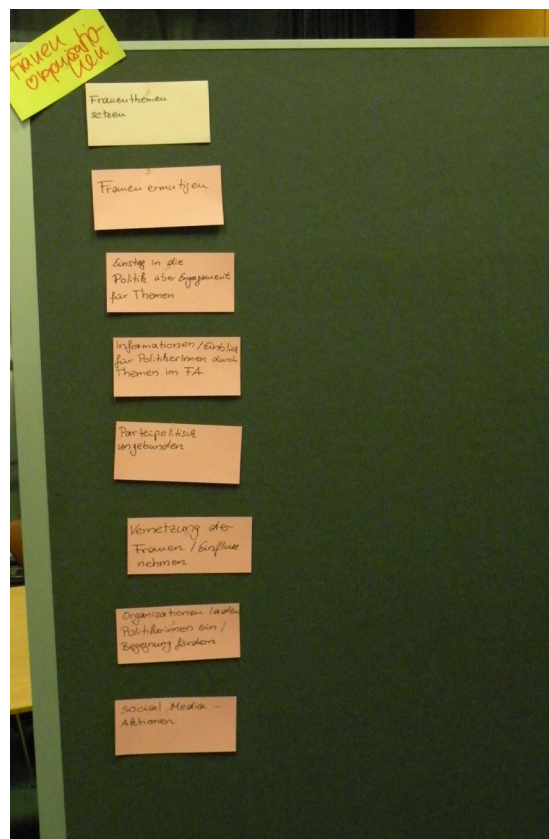 Frauen
organisatio-
nen
Frauenthemen
setzen
Frauen ermutigen
Einstieg in die
Politik über Engagement
für Themen
Informationen / Einblick
für PolitikerInnen durch
Themen im FA
Parteipolitisch
ungebunden
Vernetzung der
Frauen / Einfluss
nehmen
Organisationen laden
Politikerinnen ein /
Begegnung fördern
Social Media -
Aktionen